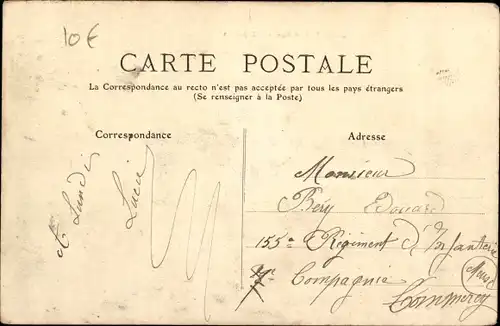 10 €
CARTE POSTALE
La Correspondance au recto n'est pas acceptée par tous les pays étrangers
(Se renseigner à la Poste)
Correspondance
Adresse
A Lundi
Lucie
Monsieur
Béry Edouard
155e Régiment d'Infanterie
Compagnie
Meuse
Commercy